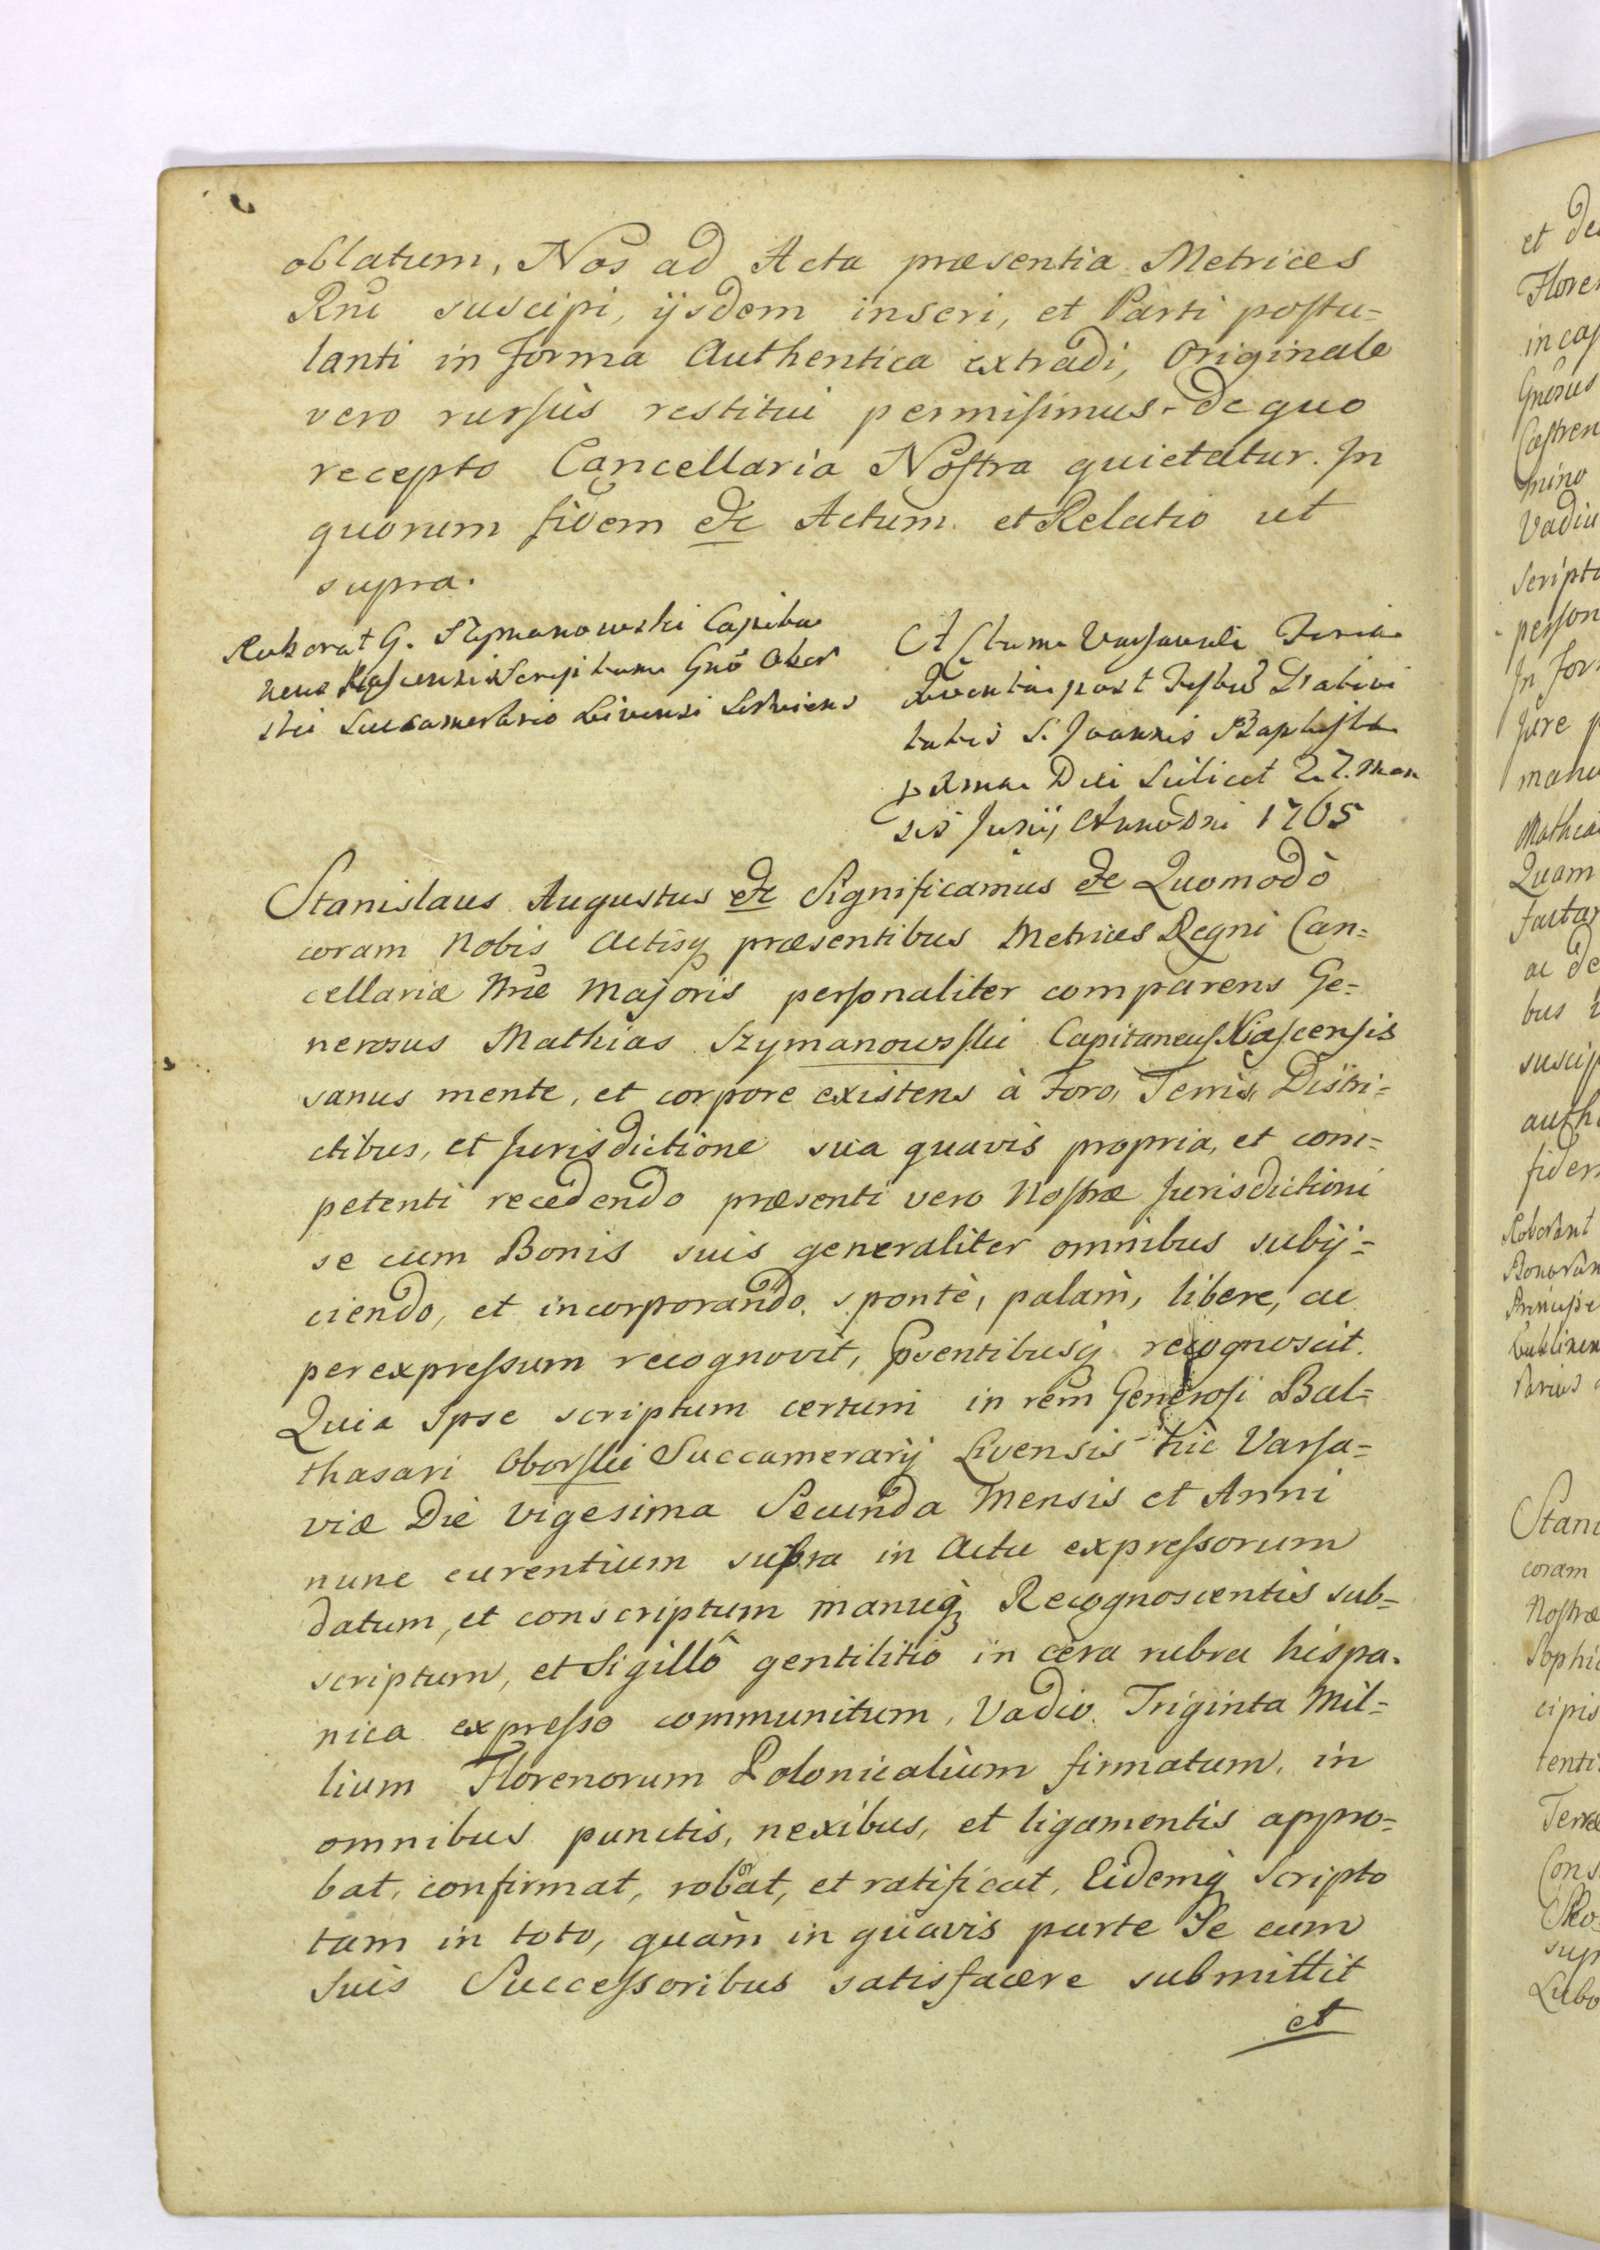 oblatum, Nos ad Acta præsentia Metrices
Rni suscipi, ijsdem inseri, et Parti postu=
lanti in forma Authentica extradi, Originale
vero rursùs restitui permisimus. de quo
recepto Cancellaria Nostra quietatur. In
quorum fidem &c Actum et Relatio ut
supra.
Roborat G. Szymanowski Capita
neus Scriptum Gnō Obor
ski Succamerario Livensi Serviens
Actum Varsaviæ Feria
Quinta post Festū Nativi
tatis S. Joannis Baptistæ
prima Die Scilicet 27. Men
sis Junij Anno Dni 1765
Stanislaus Augustus &c Significamus &c Quomodò
coram Nobis Actisq præsentibus Metrices Regni Can=
cellariæ Nræ Majoris personaliter comparens Ge=
nerosus Mathias Szymanowski Capitaneus
sanus mente, et corpore existens à Foro, Terris, Distri=
ctibus, et Jurisdictione sua quavis propria, et com=
petenti recedendo præsenti vero Nostræ Jurisdictioni
se cum Bonis suis generaliter omnibus subij=
ciendo, et incorporando, spontè, palàm, libere, ac
per expressum recognovit, pventibusq recognoscit.
Quia Ipse scriptum certum in rem Generosi Bal=
thasari Oborski Succamerarij Livensis hic Varsa=
viæ Die Vigesima Secunda Mensis et Anni
nunc curentium supra in Actu expressorum
datum, et conscriptum manuq Recognoscentis sub=
scriptum, et Sigillô gentilitio in cera rubra hispa=
nica expresso communitum, Vadio Triginta Mil=
lium Florenorum Polonicalium firmatum, in
omnibus punctis, nexibus, et ligamentis appro=
bat, confirmat, robat, et ratificat, Eidemq Scripto
tam in toto, quàm in quavis parte Se cum
Suis Successoribus satisfacere submittit
et
et
Flore
in ca
Gnōsus
Castren
mino
Vadiu
Script
person
In for
Jure p
manu
Mathia
Quam
ac de
bus
suscip
auth
fidem
Roborant
Stani
coram
Nostræ
Sophi
cipis
tenti
Terræ
Cons
sup
Lubo